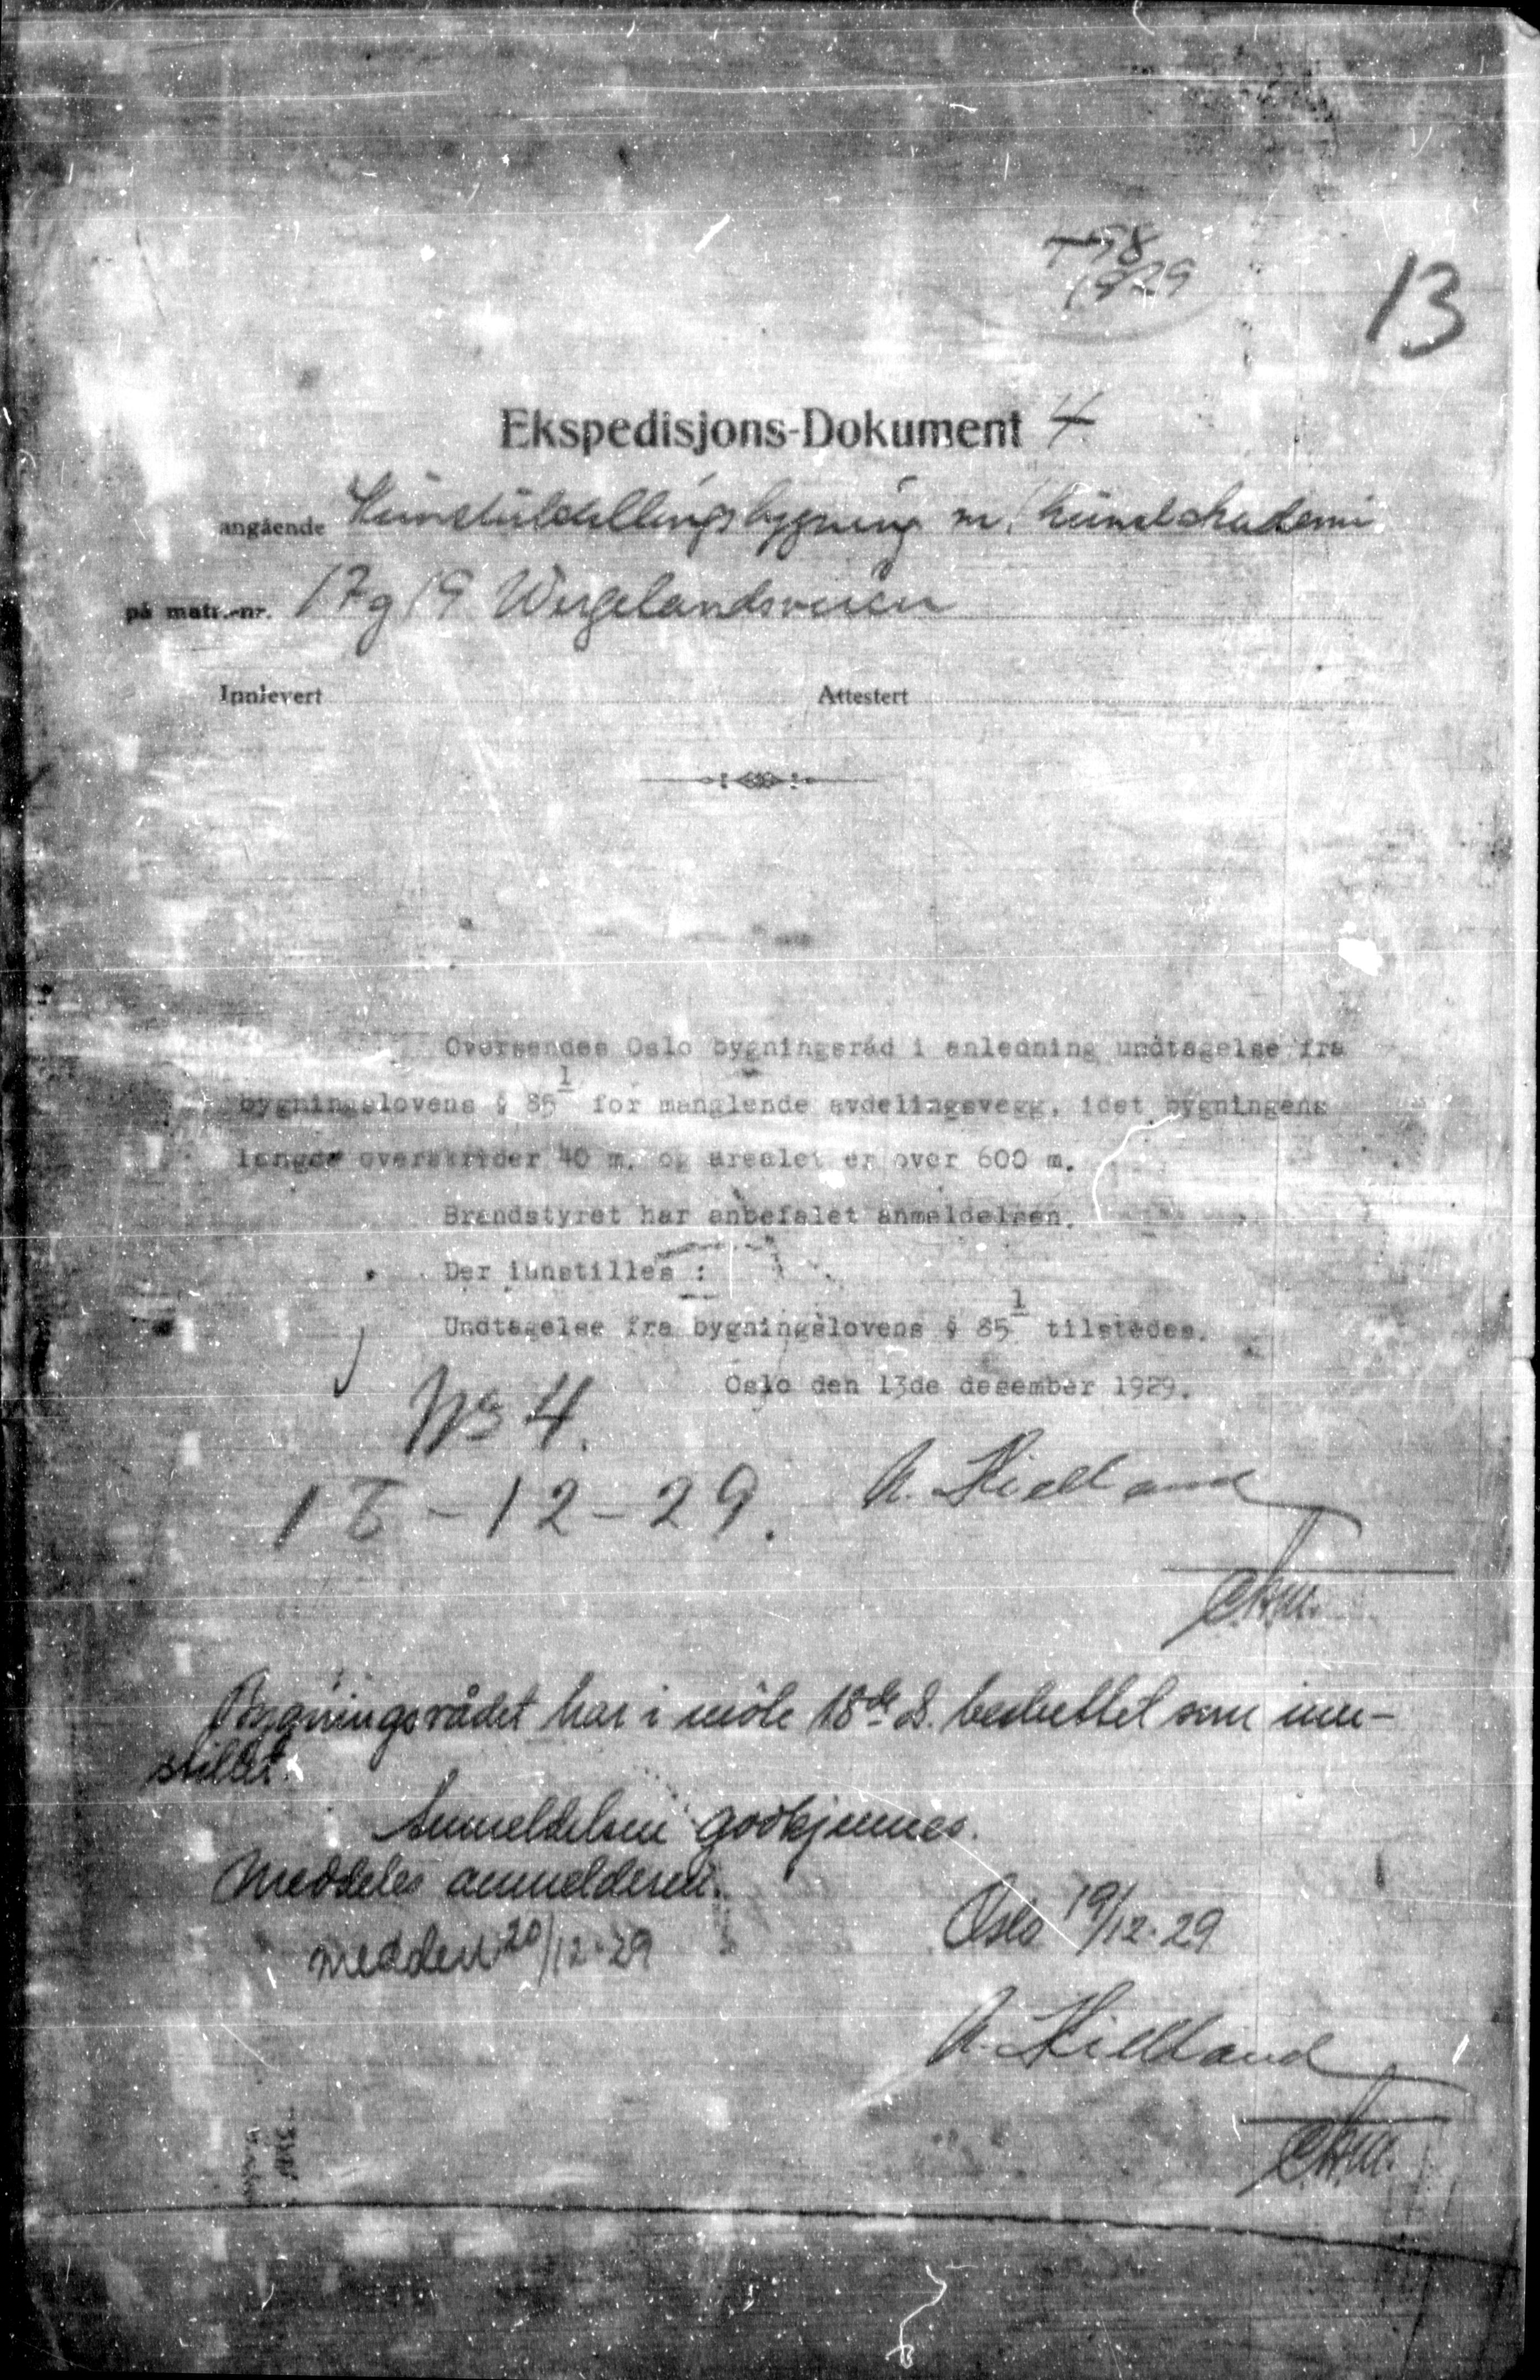 1929
13
Ekspedisjons-Dokument 4
angående Kunstutstillingsbygning m. kunstakademi
på matr.-nr. 17 og 19 Wergelandsveien
Innlevert Attestert
Oversendes Oslo bygningsråd i anledning undtagelse fra
bygningslovens § 85 1 for manglende avdelingsvegg, idet bygningens
lengde overskrider 40 m. og arealet er over 600 m.
Brandstyret har anbefalet anmeldelsen.
Der innstilles :
Undtagelse fra bygningslovens § 85 1 tilstedes.
Oslo den 13de desember 1929.
No 4.
18-12-29.
A. Kielland
Bygningsrådet har i möte 18de ds. besluttet som inn-
stillet.
Anmeldelsen godkjennes.
Meddeles anmelderen.
Oslo 19/12-29
20/12-29
A. Kielland